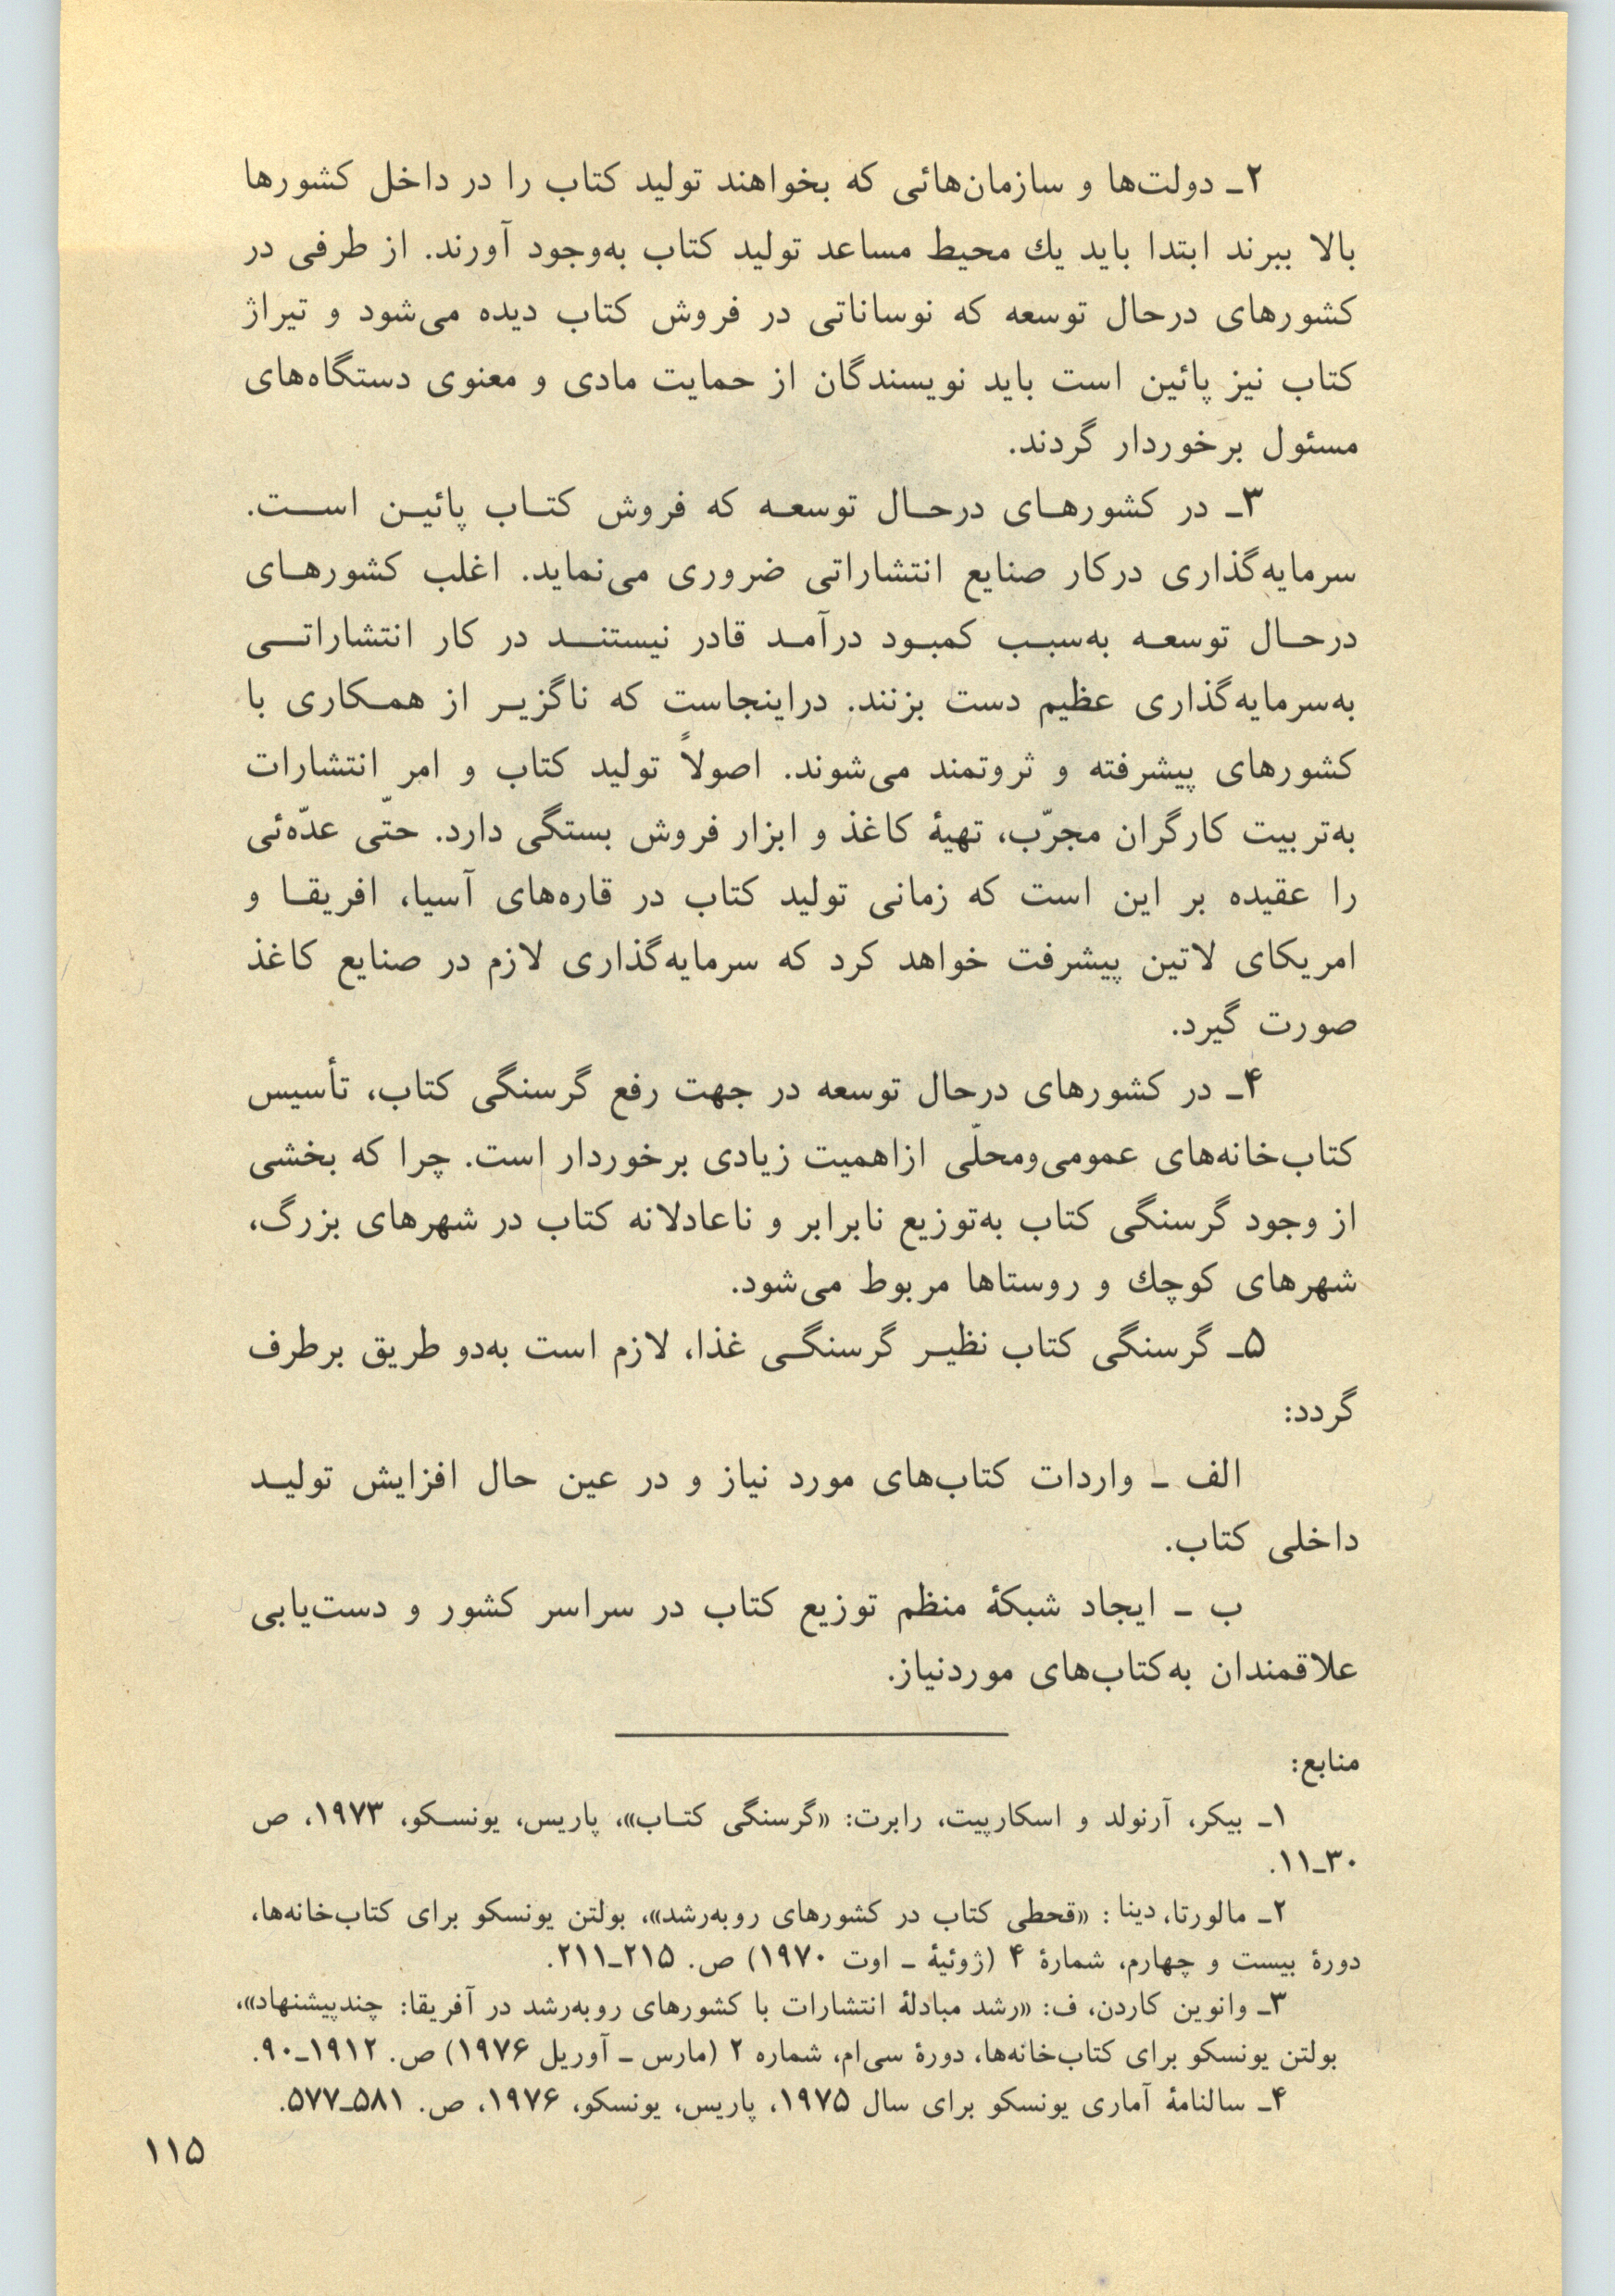 ۲ـ دولت‌ها و سازمان‌هائی که بخواهند تولید کتاب را در داخل کشورها
بالا ببرند ابتدا باید یك محیط مساعد تولید کتاب به‌وجود آورند. از طرفی در
کشورهای درحال توسعه که نوساناتی در فروش کتاب دیده می‌شود و تیراژ
کتاب نیز پائین است باید نویسندگان از حمایت مادی و معنوی دستگاه‌های
مسئول برخوردار گردند.
۳ـ در کشورهـای درحـال توسعـه که فروش کتـاب پائیـن اسـت.
سرمایه‌گذاری درکار صنایع انتشاراتی ضروری می‌نماید. اغلب کشورهـای
درحـال توسعـه به‌سبـب کمبـود درآمـد قادر نیستنـد در کار انتشاراتـی
به‌سرمایه‌گذاری عظیم دست بزنند. دراینجاست که ناگزیـر از همـکاری با
کشورهای پیشرفته و ثروتمند می‌شوند. اصولاً تولید کتاب و امر انتشارات
به‌تربیت کارگران مجرّب، تهیهٔ کاغذ و ابزار فروش بستگی دارد. حتّی عدّه‌ئی
را عقیده بر این است که زمانی تولید کتاب در قاره‌های آسیا، افریقـا و
امریکای لاتین پیشرفت خواهد کرد که سرمایه‌گذاری لازم در صنایع کاغذ
صورت گیرد.
۴ـ در کشورهای درحال توسعه در جهت رفع گرسنگی کتاب، تأسیس
کتاب‌خانه‌های عمومی‌ومحلّی ازاهمیت زیادی برخوردار است. چرا که بخشی
از وجود گرسنگی کتاب به‌توزیع نابرابر و ناعادلانه کتاب در شهرهای بزرگ،
شهرهای کوچك و روستاها مربوط می‌شود.
۵ـ گرسنگی کتاب نظیـر گرسنگـی غذا، لازم است به‌دو طریق برطرف
گردد:
الف ـ واردات کتاب‌های مورد نیاز و در عین حال افزایش تولیـد
داخلی کتاب.
ب ـ ایجاد شبکهٔ منظم توزیع کتاب در سراسر کشور و دست‌یابی
علاقمندان به‌کتاب‌های موردنیاز.
منابع:
۱ـ بیکر، آرنولد و اسکارپیت، رابرت: «گرسنگی کتـاب»، پاریس، یونسـکو، ۱۹۷۳، ص
۳۰ـ۱۱.
۲ـ مالورتا، دینا : «قحطی کتاب در کشورهای روبه‌رشد»، بولتن یونسکو برای کتاب‌خانه‌ها،
دورهٔ بیست و چهارم، شمارهٔ ۴ (ژوئیهٔ ـ اوت ۱۹۷۰) ص. ۲۱۵ـ۲۱۱.
۳ـ وانوین کاردن، ف: «رشد مبادلهٔ انتشارات با کشورهای روبه‌رشد در آفریقا: چندپیشنهاد»،
بولتن یونسکو برای کتاب‌خانه‌ها، دورهٔ سی‌ام، شماره ۲ (مارس ـ آوریل ۱۹۷۶) ص. ۱۹۱۲ـ۹۰.
۴ـ سالنامهٔ آماری یونسکو برای سال ۱۹۷۵، پاریس، یونسکو، ۱۹۷۶، ص. ۵۸۱ـ۵۷۷.
۱۱۵